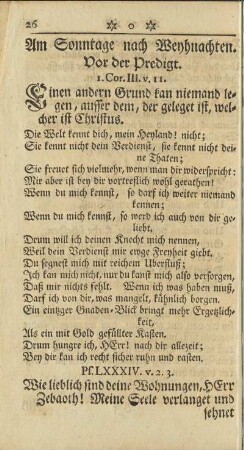 26 ★ ☼ ★
Am Sonntage nach Weyhnachten.
Vor der Predigt.
1. Cor. III. v. 11.
Einen andern Grund kan niemand le-
gen, ausser dem, der geleget ist, wel-
cher ist Christus.
Die Welt kennt dich, mein Heyland! nicht;
Sie kennt nicht dein Verdienst, sie kennt nicht deine
Thaten;
Sie freuet sich vielmehr, wenn man dir widerspricht:
Mir aber ist bey dir vortreflich wohl gerathen!
Wenn du mich kennst, so darf ich weiter niemand
kennen;
Wenn du mich kennst, so werd ich auch von dir ge-
liebt,
Drum will ich deinen Knecht mich nennen,
Weil dein Verdienst mir ewge Freyheit giebt,
Du segnest mich mit reichem Uberfluß;
Ich kan mich nicht, nur du kanst mich also versorgen,
Daß mir nichts fehlt. Wenn ich was haben muß,
Darf ich von dir, was mangelt, kühnlich borgen.
Ein eintzger Gnaden-Blick bringt mehr Ergetzlich-
keit,
Als ein mit Gold gefüllter Kasten.
Drum hungre ich, HErr! nach dir allezeit;
Bey dir kan ich recht sicher ruhn und rasten.
Pf. LXXXIV. v. 2. 3.
Wie lieblich sind deine Wohnungen, HErr
Zebaoth! Meine Seele verlanget und
sehnet